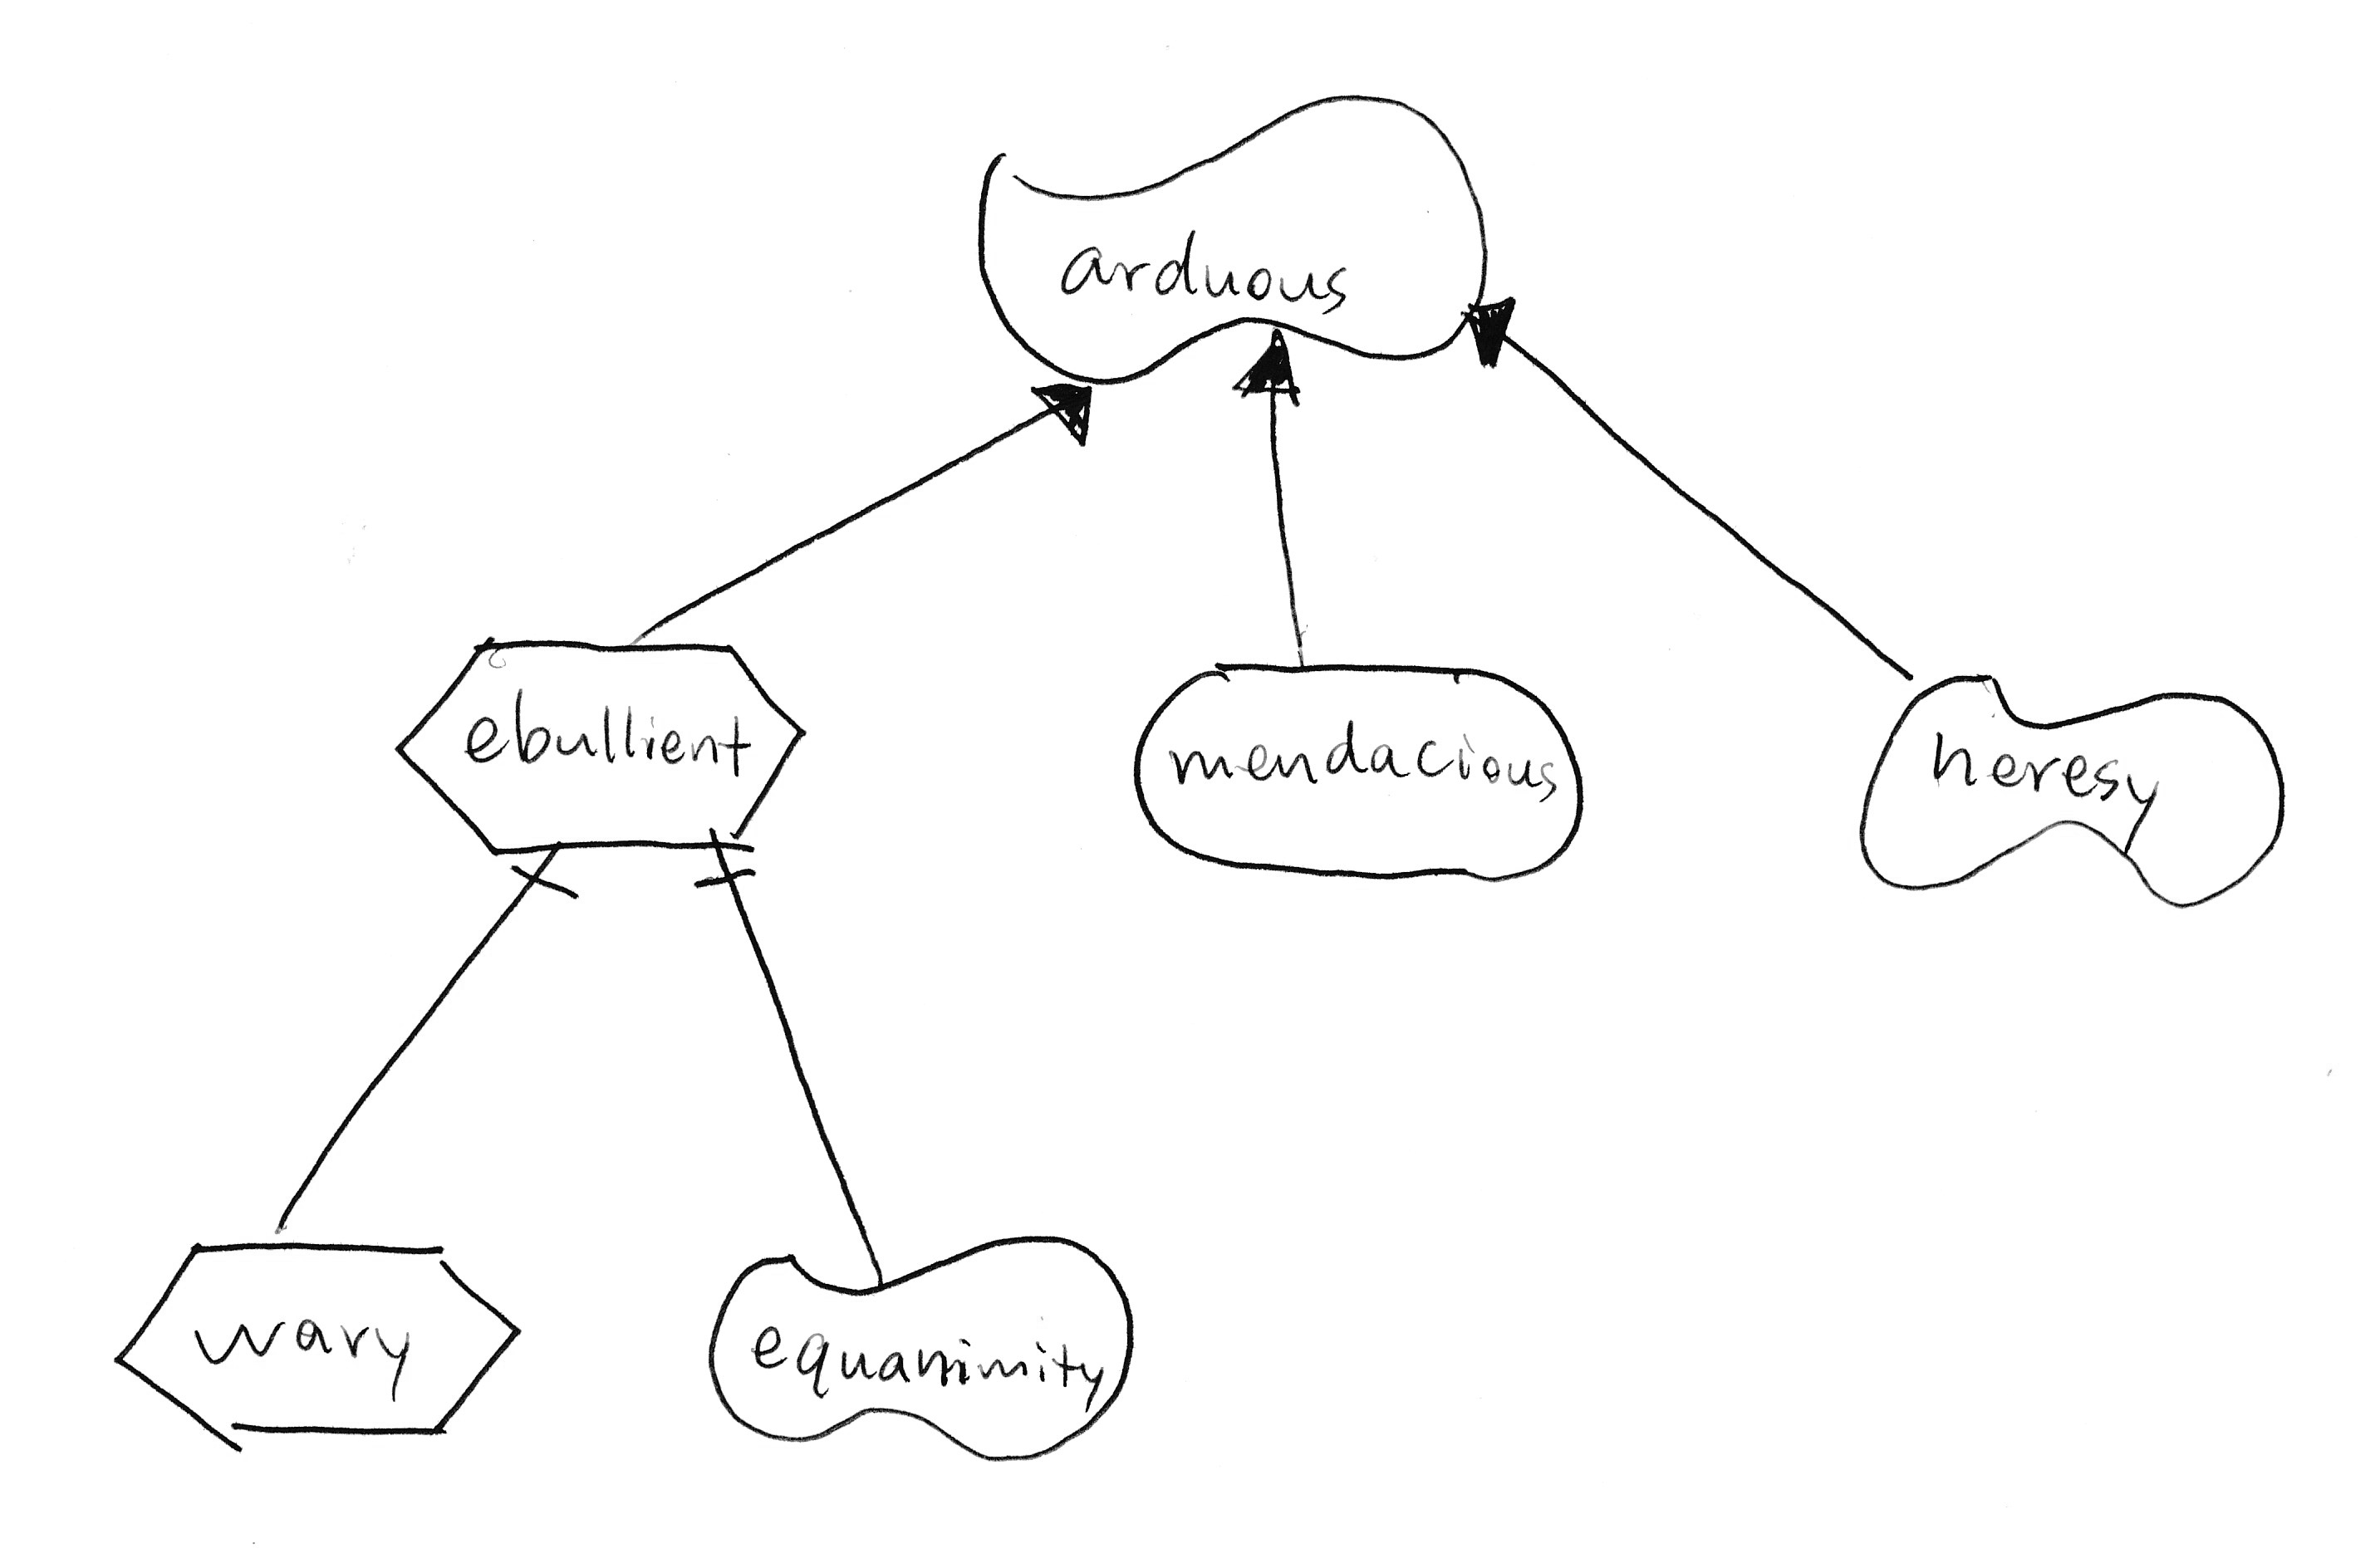 arduous
ebullient
mendacious
heresy
wary
equanimity